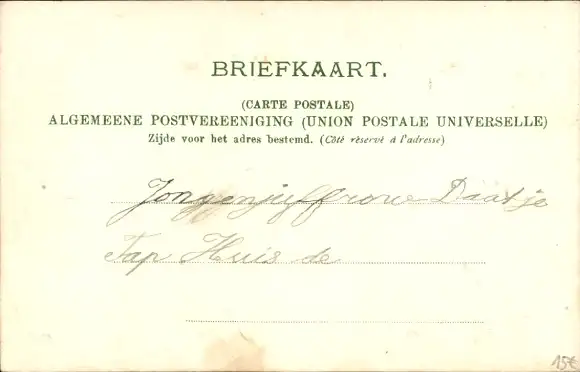 BRIEFKAART.
(CARTE POSTALE)
ALGEMEENE POSTVEREENIGING (UNION POSTALE UNIVERSELLE)
Zijde voor het adres bestemd. (Côté rèservè á l'adresse)
Jongenjuffrouw Daatje
Tap Huis de
15€